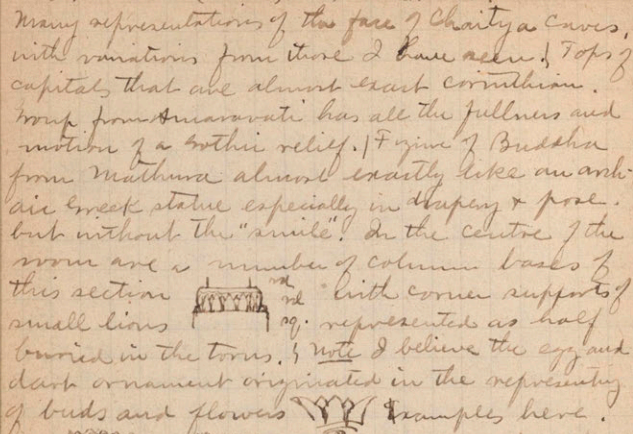 Many representations of the face of Chaitya caves,
with variations from those I have seen. | Tops of
capitals that are almost exact corinthian.
Group from Amaravati has all the fullness and
motion of a Gothic relief. | Figure of Buddha
from Mathura almost exactly like an arch-
aic Greek statue especially in drapery & pose.
but without the "smile". In the centre of the
room are a number of column bases of
this section rd sq. with corner supports of
small lions represented as half
buried in the torus. | Note I believe the egg and
dart ornament originated in the representing
of buds and flowers Examples here.